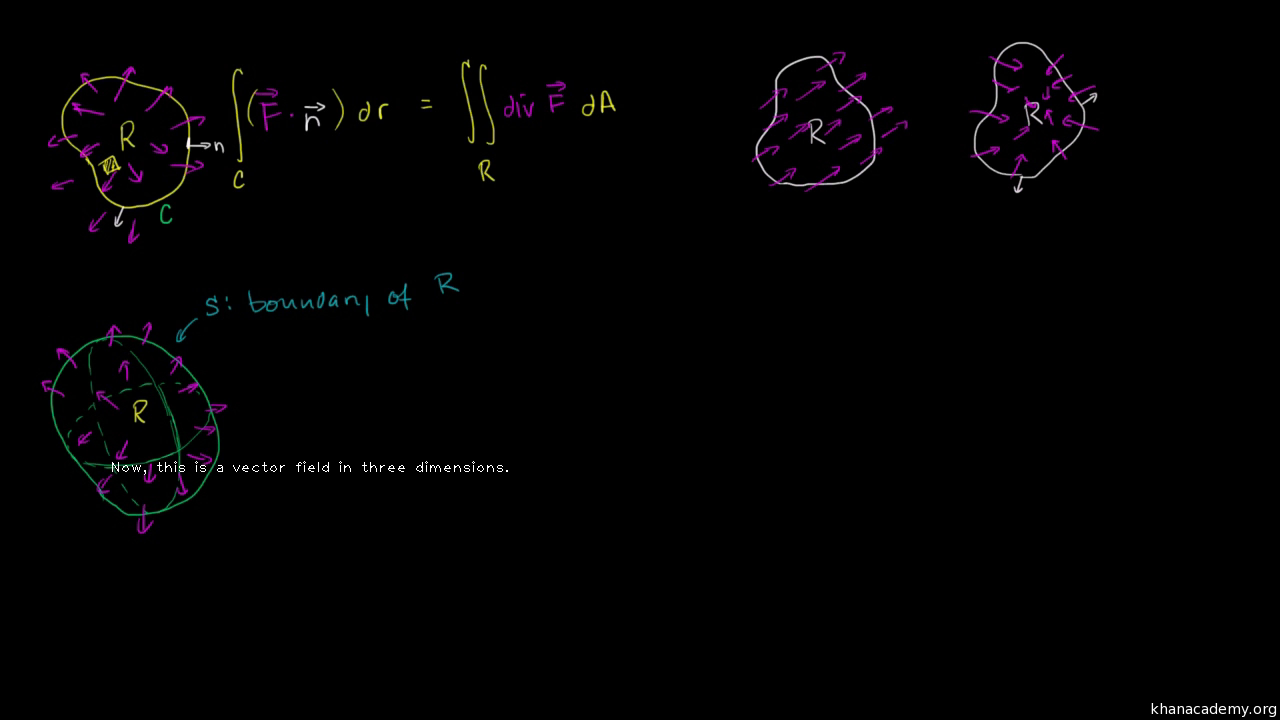 R
n
C
∫_C (F⃗ · n⃗) dr = ∬_R div F⃗ dA
R
R
S: boundary of R
R
Now, this is a vector field in three dimensions.
khanacademy.org